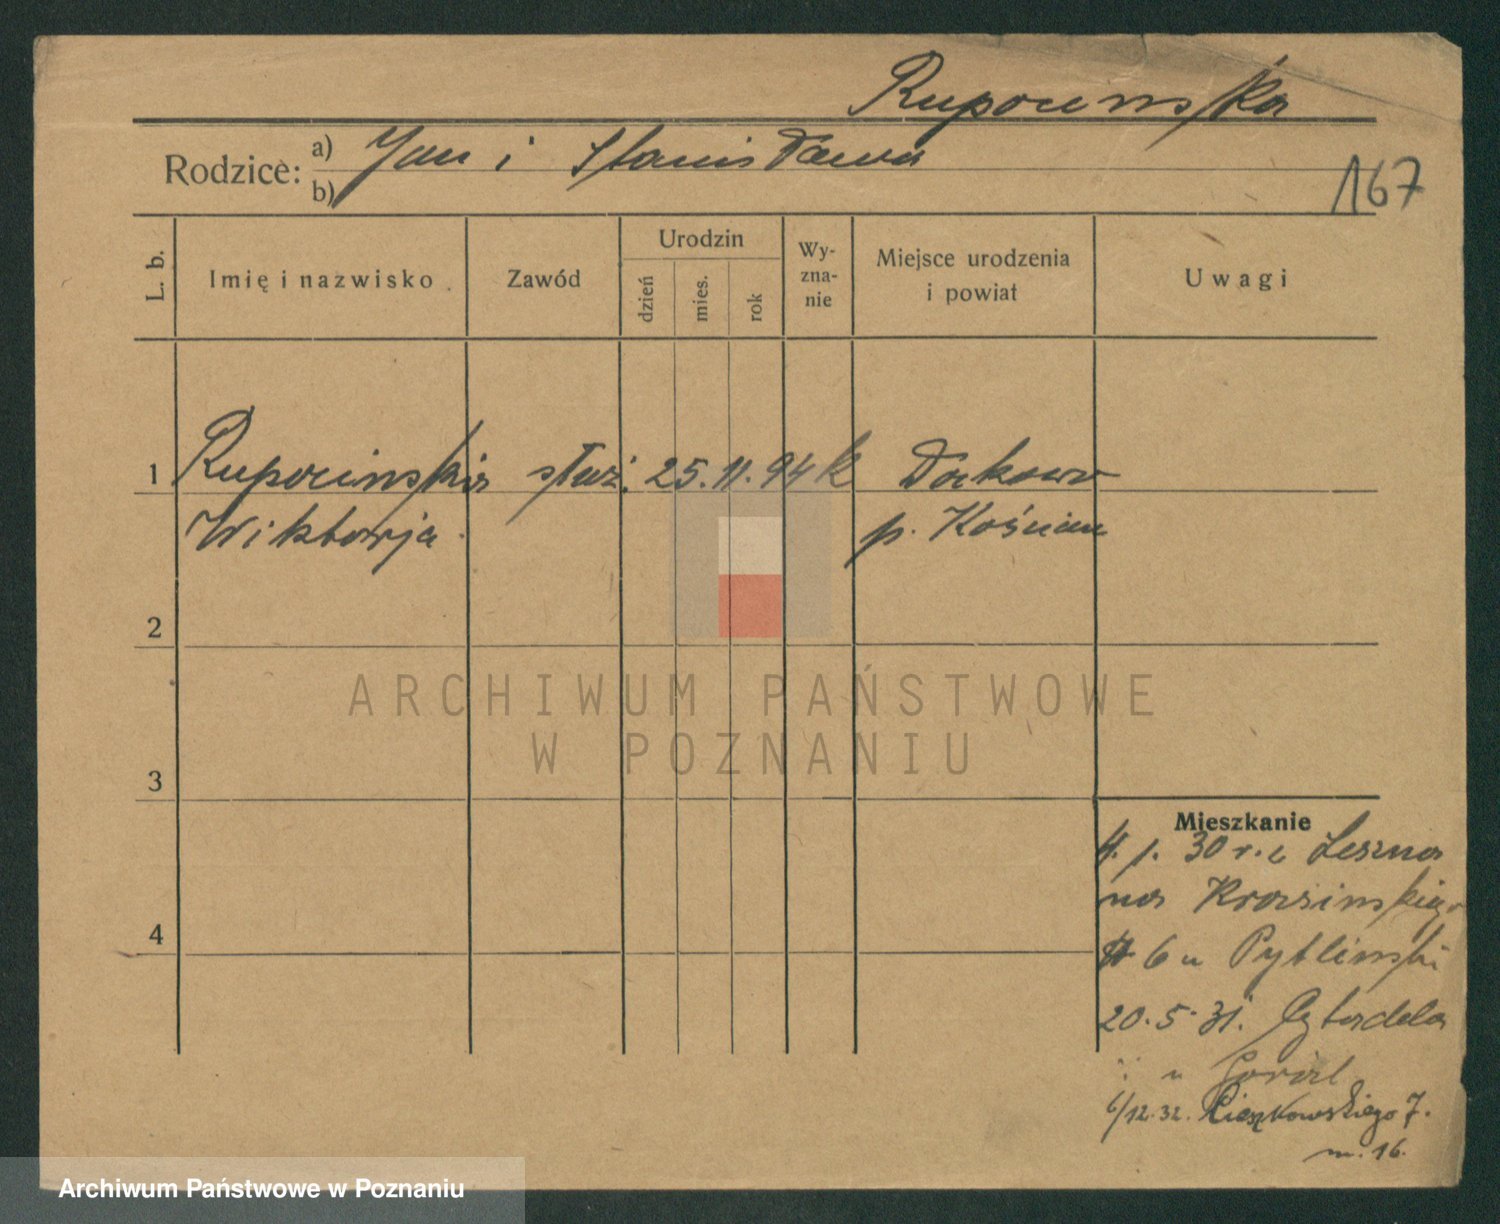 Rupocinska
Rodzice: a) Jan i Stanisława
b)
167
L. b. Imię i nazwisko Zawód Urodzin dzień mies. rok Wy-zna-nie Miejsce urodzenia i powiat Uwagi
1 Rupocinska służ. 25. 11. 94 k Dakowo
Wiktorja p. Kościan
2
3
4
Mieszkanie
4. 1. 30 r. z Leszna
na Krasinskiego
6 u Pytlinski
20. 5. 31. Cytadela
" u Goral
6/12. 32. Cieszkowskiego 7.
m. 16.
ARCHIWUM PAŃSTWOWE
W POZNANIU
Archiwum Państwowe w Poznaniu